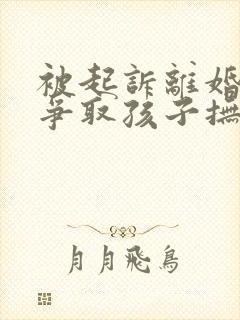 被起訴離婚
爭取孩子撫
月月飛鳥